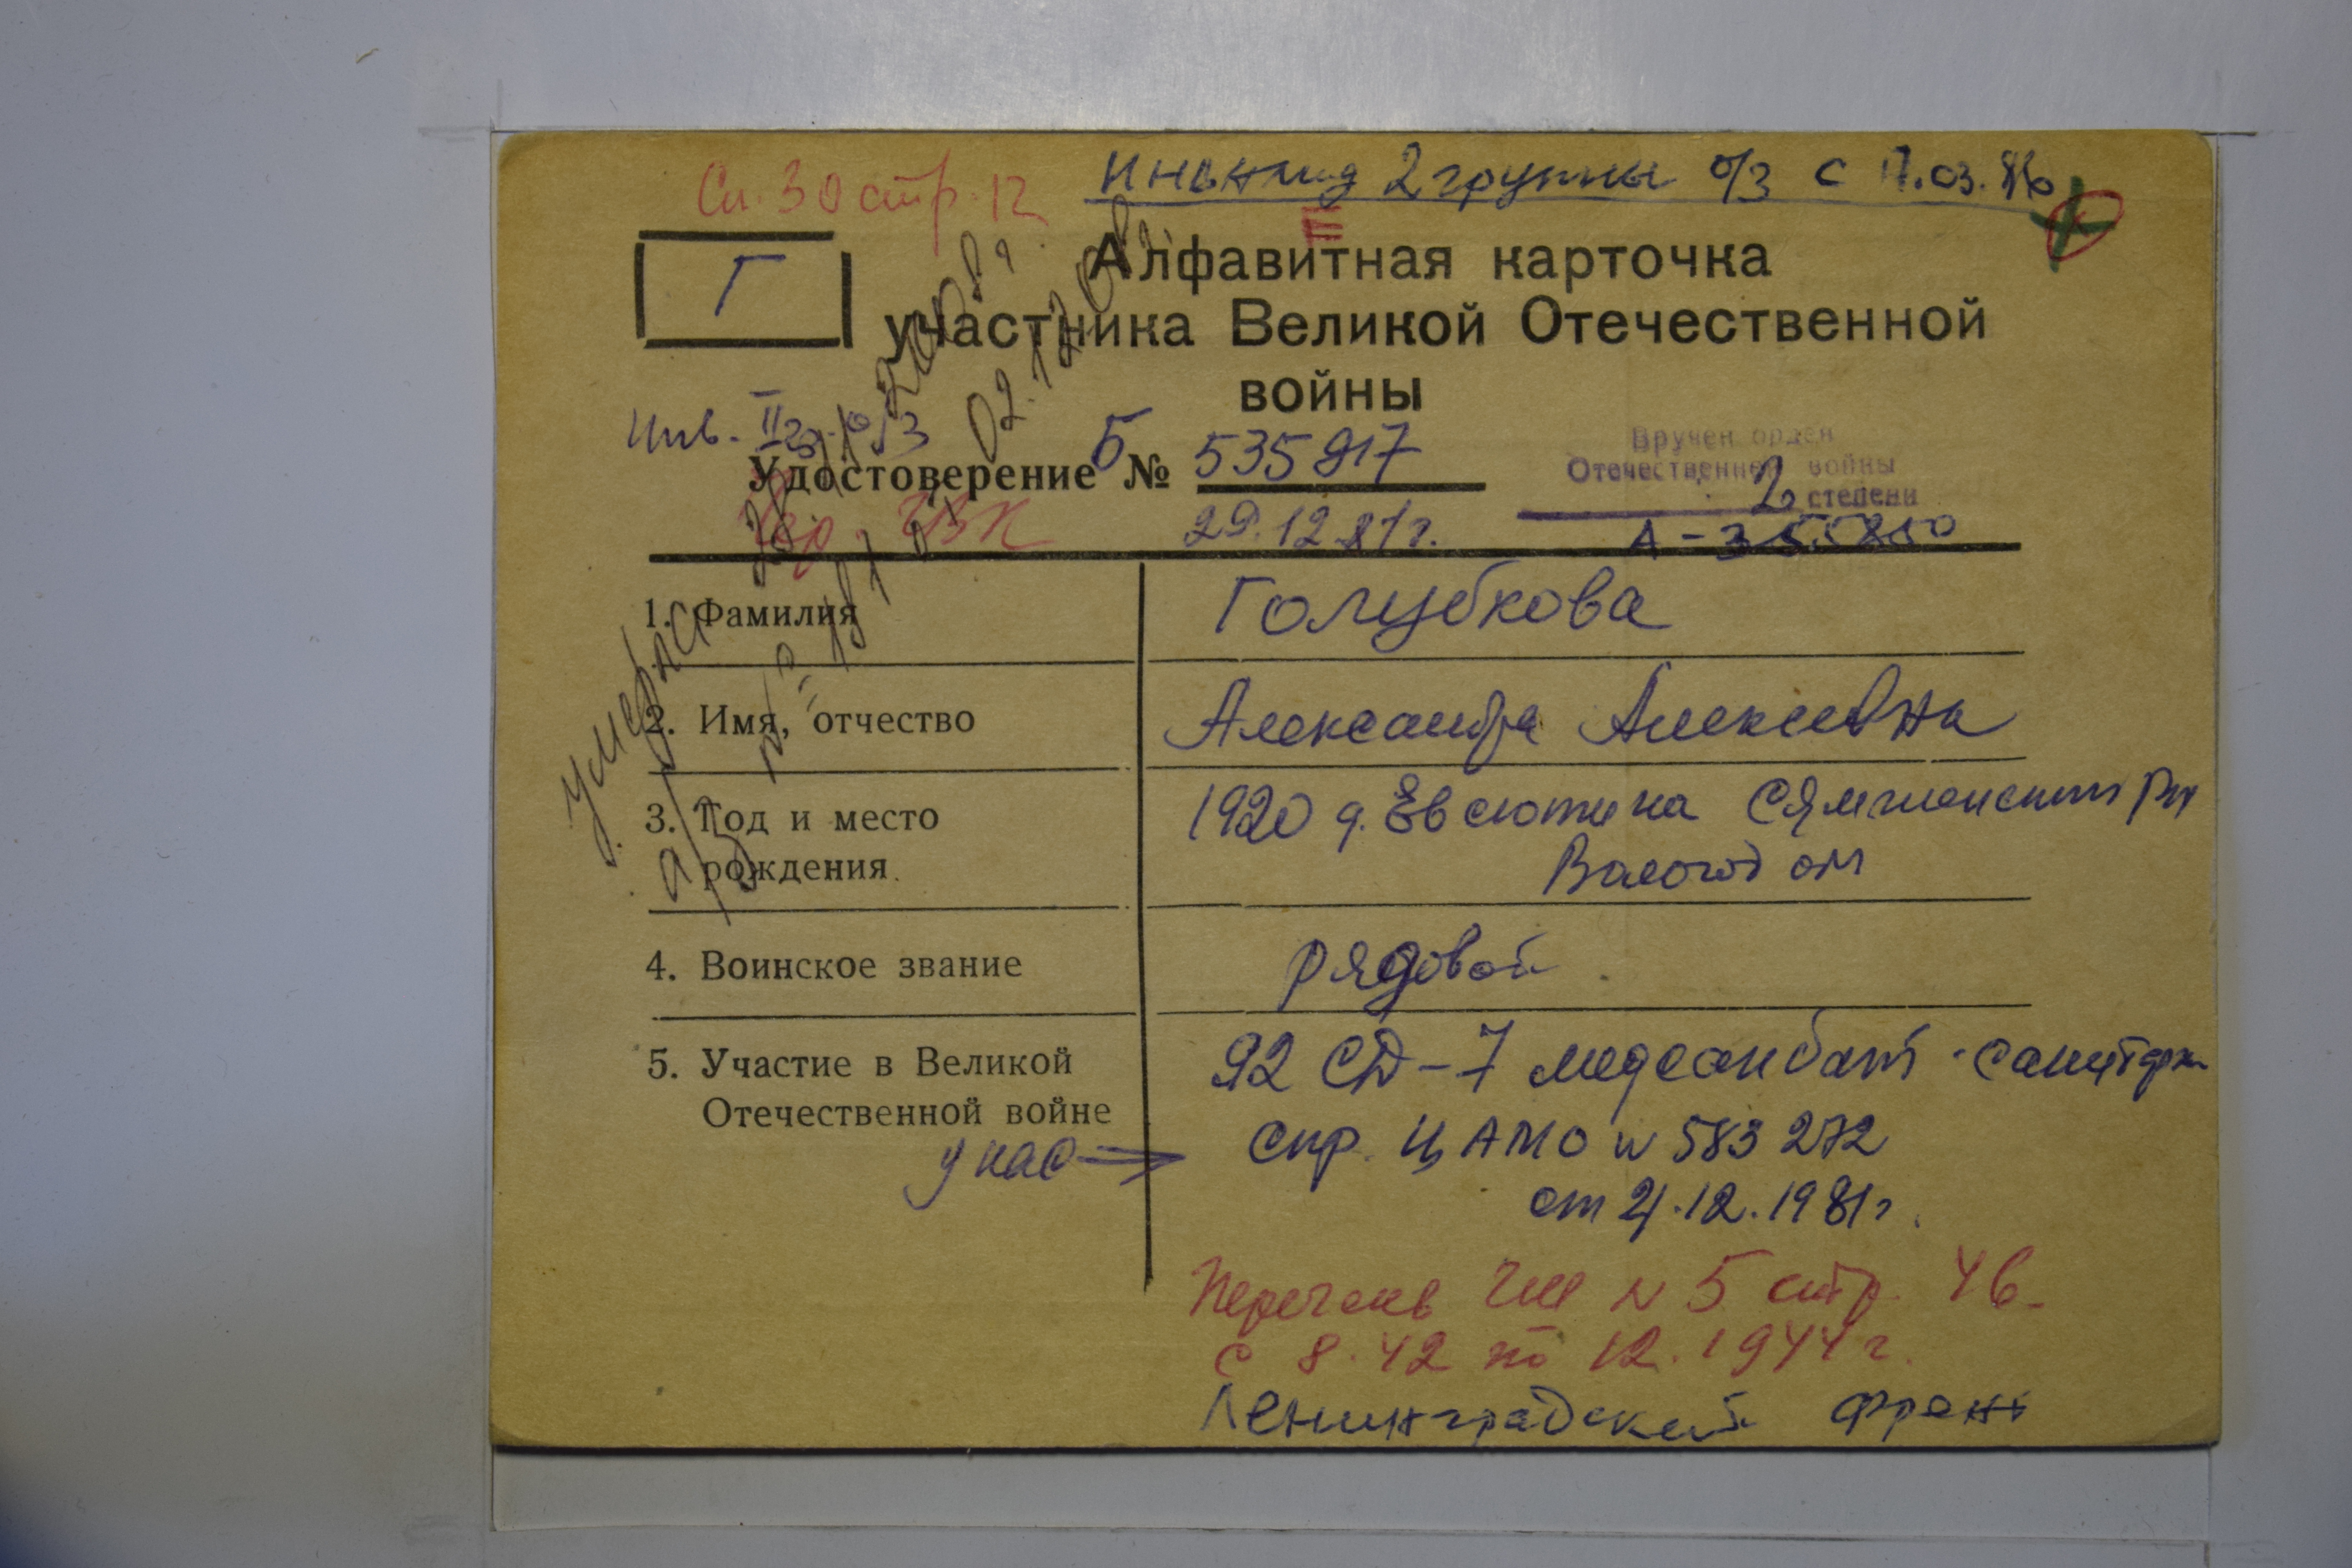 Сп. 30 стр. 12
Инвалид 2 группы о/з с 17.03.86
Г
Алфавитная карточка
участника Великой Отечественной
войны
Инв. II гр. о/з
Удостоверение Б № 535917
29.12.81г.
Вручен орден
Отечественной войны
2 степени
А-355850
умерла
02.12.
1. Фамилия Голубкова
2. Имя, отчество Александра Алексеевна
3. Год и место рождения 1920 д. Евсютина Сямженский рн
Вологод обл
4. Воинское звание рядовой
5. Участие в Великой Отечественной войне 92 СД-7 медсанбат - санитарка
у нас → спр. ЦАМО № 583272
от 4.12.1981г.
Перечень ГШ № 5 стр. 46.
с 8.42 по 12.1944г.
Ленинградский фронт